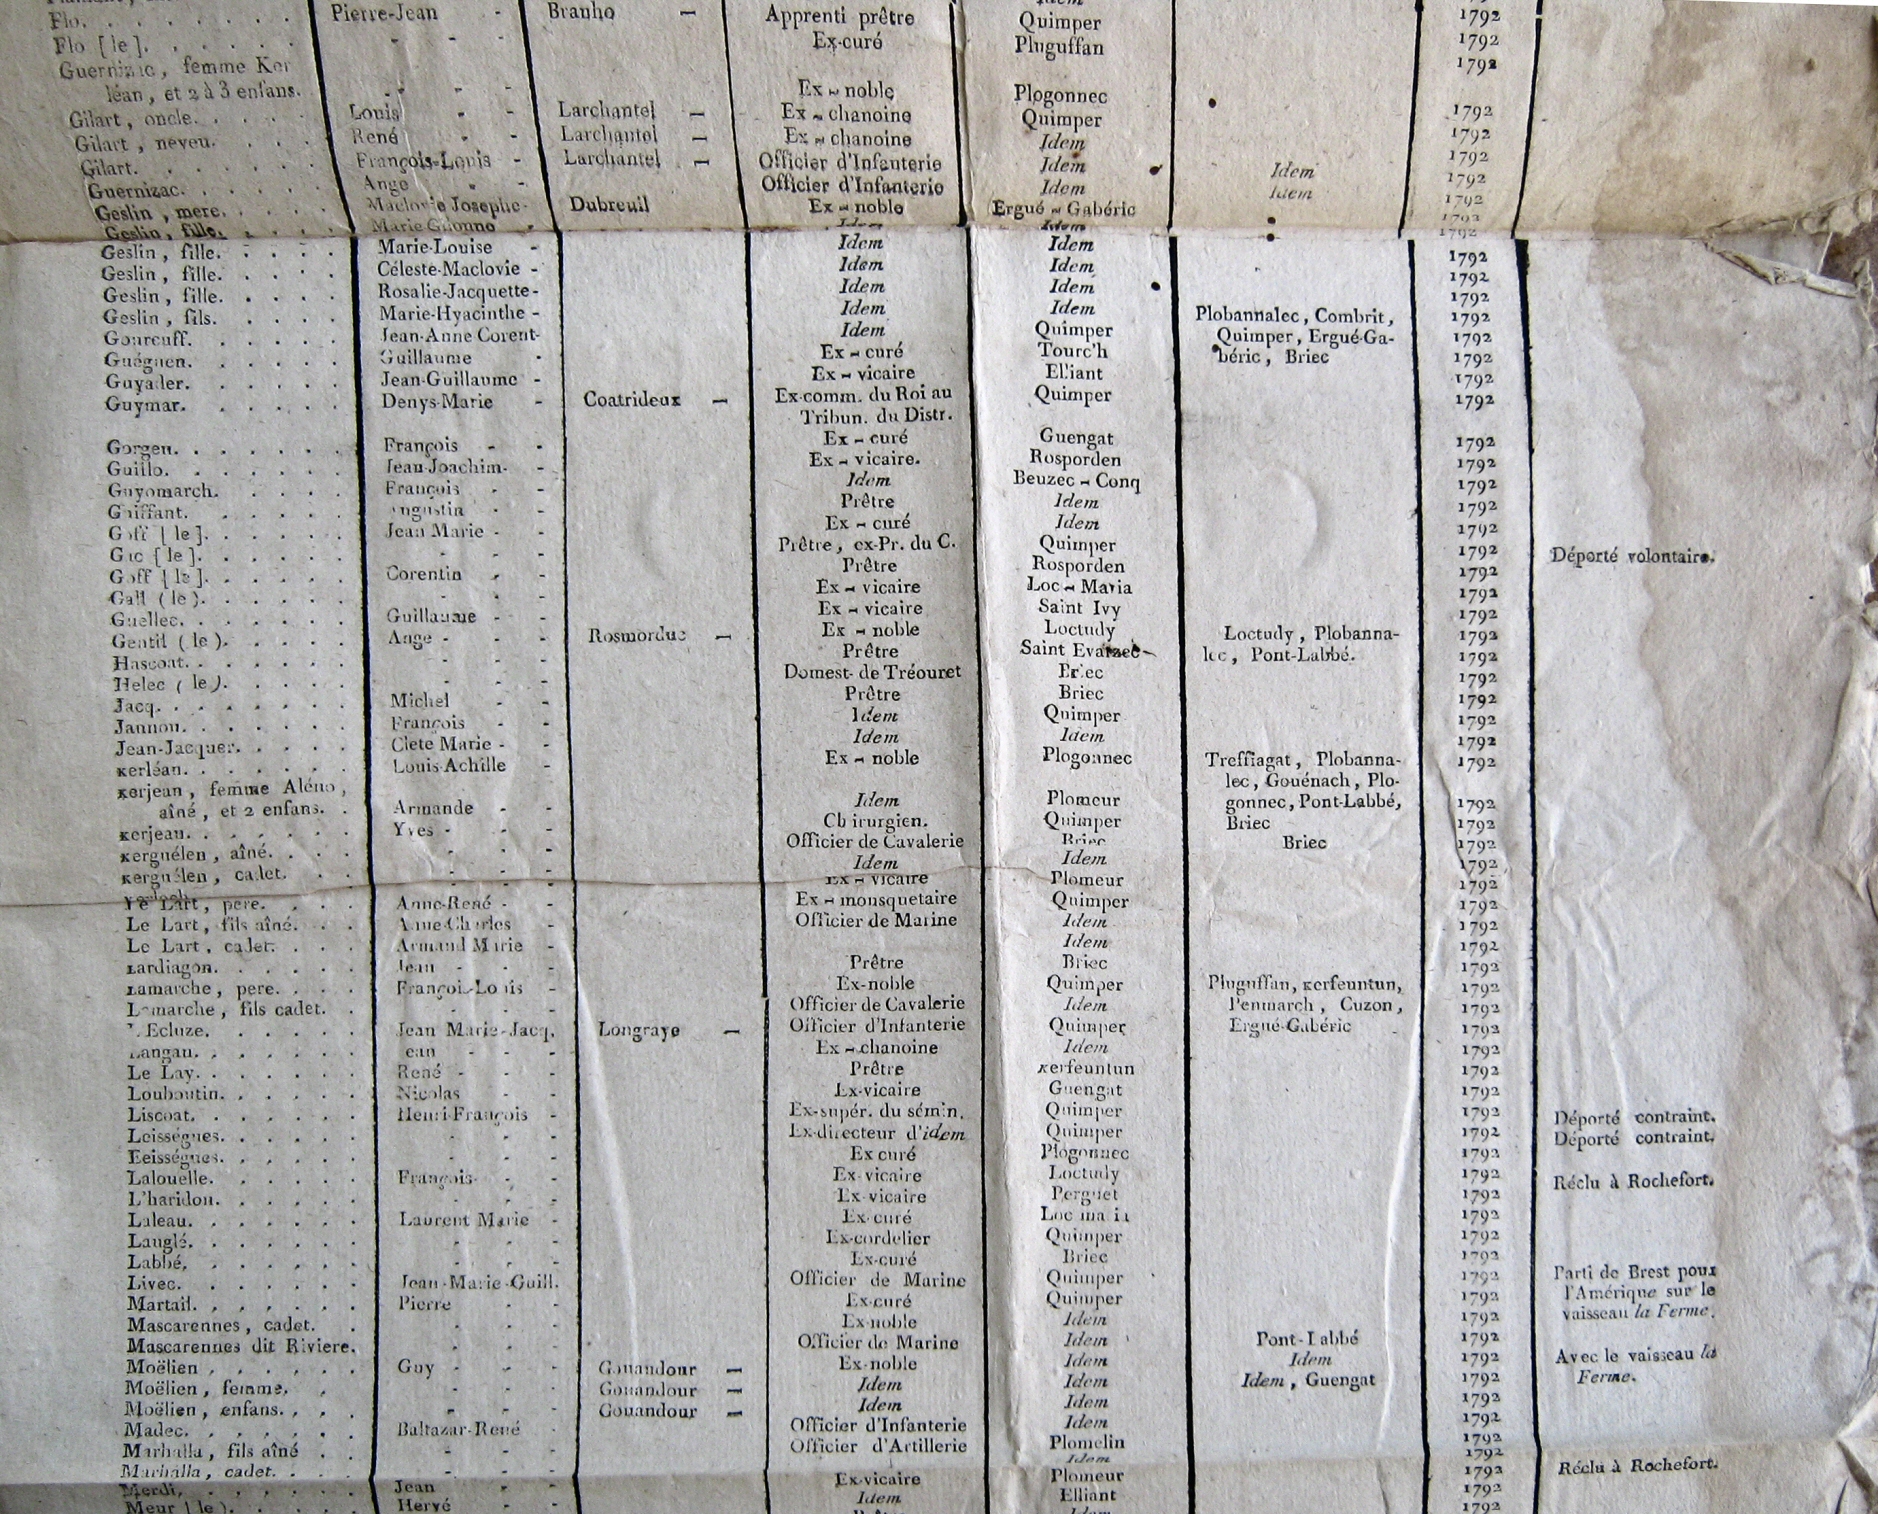 Flo. Pierre-Jean - Branho — Apprenti prêtre Quimper 1792
Flo [le]. - - - Ex-curé Pluguffan 1792
Guernizac, femme Ker 1792
léan, et 2 à 3 enfans. - - - Ex-noble Plogonnec
Gilart, oncle. Louis - - Larchantel — Ex-chanoine Quimper 1792
Gilart, neveu. René - - Larchantel — Ex-chanoine Idem 1792
Gilart. François-Louis - Larchantel — Officier d'Infanterie Idem Idem 1792
Guernizac. Ange - - Officier d'Infanterie Idem Idem 1792
Geslin, mere. Maclovie Josephe- Dubreuil Ex-noble Ergué-Gabéric 1792
Geslin, fille. Idem Idem 1792
Geslin, fille. Marie-Louise - Idem Idem 1792
Geslin, fille. Céleste-Maclovie - Idem Idem 1792
Geslin, fille. Rosalie-Jacquette- Idem Idem 1792
Geslin, fils. Marie-Hyacinthe - Idem Idem Plobannalec, Combrit, 1792
Gourcuff. Jean-Anne Corent- Idem Quimper Quimper, Ergué-Ga- 1792
Guéguen. Guillaume - Ex-curé Tourc'h béric, Briec 1792
Guyader. Jean-Guillaume - Ex-vicaire Elliant 1792
Guymar. Denys-Marie - Coatrideux — Ex-comm. du Roi au Quimper 1792
Tribun. du Distr.
Gorgen. François - - Ex-curé Guengat 1792
Guillo. Jean-Joachim- - Ex-vicaire. Rosporden 1792
Guyomarch. François - - Idem Beuzec-Conq 1792
Guiffant. - - Prêtre Idem 1792
Goff [le]. Jean Marie - - Ex-curé Idem 1792
Gac [le]. - - - Prêtre, ex-Pr. du C. Quimper 1792 Déporté volontaire.
Goff [le]. Corentin - - Prêtre Rosporden 1792
Gall (le). - - - Ex-vicaire Loc-Maria 1792
Guellec. Guillaume - - Ex-vicaire Saint Ivy 1792
Gentil (le). Ange - - - Rosmorduc — Ex-noble Loctudy Loctudy, Plobanna- 1792
Hascoat. - - - Prêtre Saint Evarzec lec, Pont-Labbé. 1792
Helec (le). - - - Domest- de Tréouret Briec 1792
Jacq. Michel - - Prêtre Briec 1792
Jannou. François - - Idem Quimper 1792
Jean-Jacquer. Clete Marie - - Idem Idem 1792
kerléan. Louis-Achille - Ex-noble Plogonnec Treffiagat, Plobanna- 1792
kerjean, femme Aléno, lec, Gouénach, Plo-
aîné, et 2 enfans. Armande - - Idem Plomeur gonnec, Pont-Labbé, 1792
kerjeau. Yves - - - Chirurgien. Quimper Briec 1792
kerguélen, aîné. - - - Officier de Cavalerie Briec Briec 1792
kerguélen, cadet. - - - Idem Idem 1792
Ex-vicaire Plomeur 1792
Le Lart, pere. Anne-René - - Ex-mousquetaire Quimper 1792
Le Lart, fils aîné. Anne-Charles - Officier de Marine Idem 1792
Le Lart, cadet. Armand Marie - Idem 1792
Lardiagon. Jean - - - Prêtre Briec 1792
Lamarche, pere. François-Louis - Ex-noble Quimper Pluguffan, kerfeuntun, 1792
Lamarche, fils cadet. Officier de Cavalerie Idem Penmarch, Cuzon, 1792
L'Ecluze. Jean Marie-Jacq. Longraye — Officier d'Infanterie Quimper Ergué-Gabéric 1792
Langau. Jean - - - Ex-chanoine Idem 1792
Le Lay. René - - - Prêtre kerfeuntun 1792
Louboutin. Nicolas - - Ex-vicaire Guengat 1792
Liscoat. Henri-François - Ex-supér. du sémin. Quimper 1792 Déporté contraint.
Leisségues. - - - Ex-directeur d'idem Quimper 1792 Déporté contraint.
Leisségues. - - - Ex curé Plogonnec 1792
Lalouelle. François- - - Ex-vicaire Loctudy 1792 Réclu à Rochefort.
L'haridon. - - - Ex-vicaire Perguet 1792
Laleau. Laurent Marie - Ex-curé Loc maria 1792
Lauglé. - - - Ex-cordelier Quimper 1792
Labbé. - - - Ex-curé Briec 1792
Livec. Jean-Marie-Guill. Officier de Marine Quimper 1792 Parti de Brest pour
Martail. Pierre - - Ex-curé Quimper 1792 l'Amérique sur le
Mascarennes, cadet. - - - Ex-noble Idem 1792 vaisseau la Ferme.
Mascarennes dit Riviere. - - - Officier de Marine Idem Pont-Labbé 1792
Moëlien Guy - - - Gouandour — Ex-noble Idem Idem 1792 Avec le vaisseau la
Moëlien, femme. - - - Gouandour — Idem Idem Idem, Guengat 1792 Ferme.
Moëlien, enfans. - - - Gouandour — Idem Idem 1792
Madec. Baltazar-René - Officier d'Infanterie Idem 1792
Marhalla, fils aîné - - - Officier d'Artillerie Plomelin 1792
Marhalla, cadet. - - - Idem 1792
Merdi. Jean - - Ex-vicaire Plomeur 1792 Réclu à Rochefort.
Meur (le). Hervé - - Idem Elliant 1792
1792